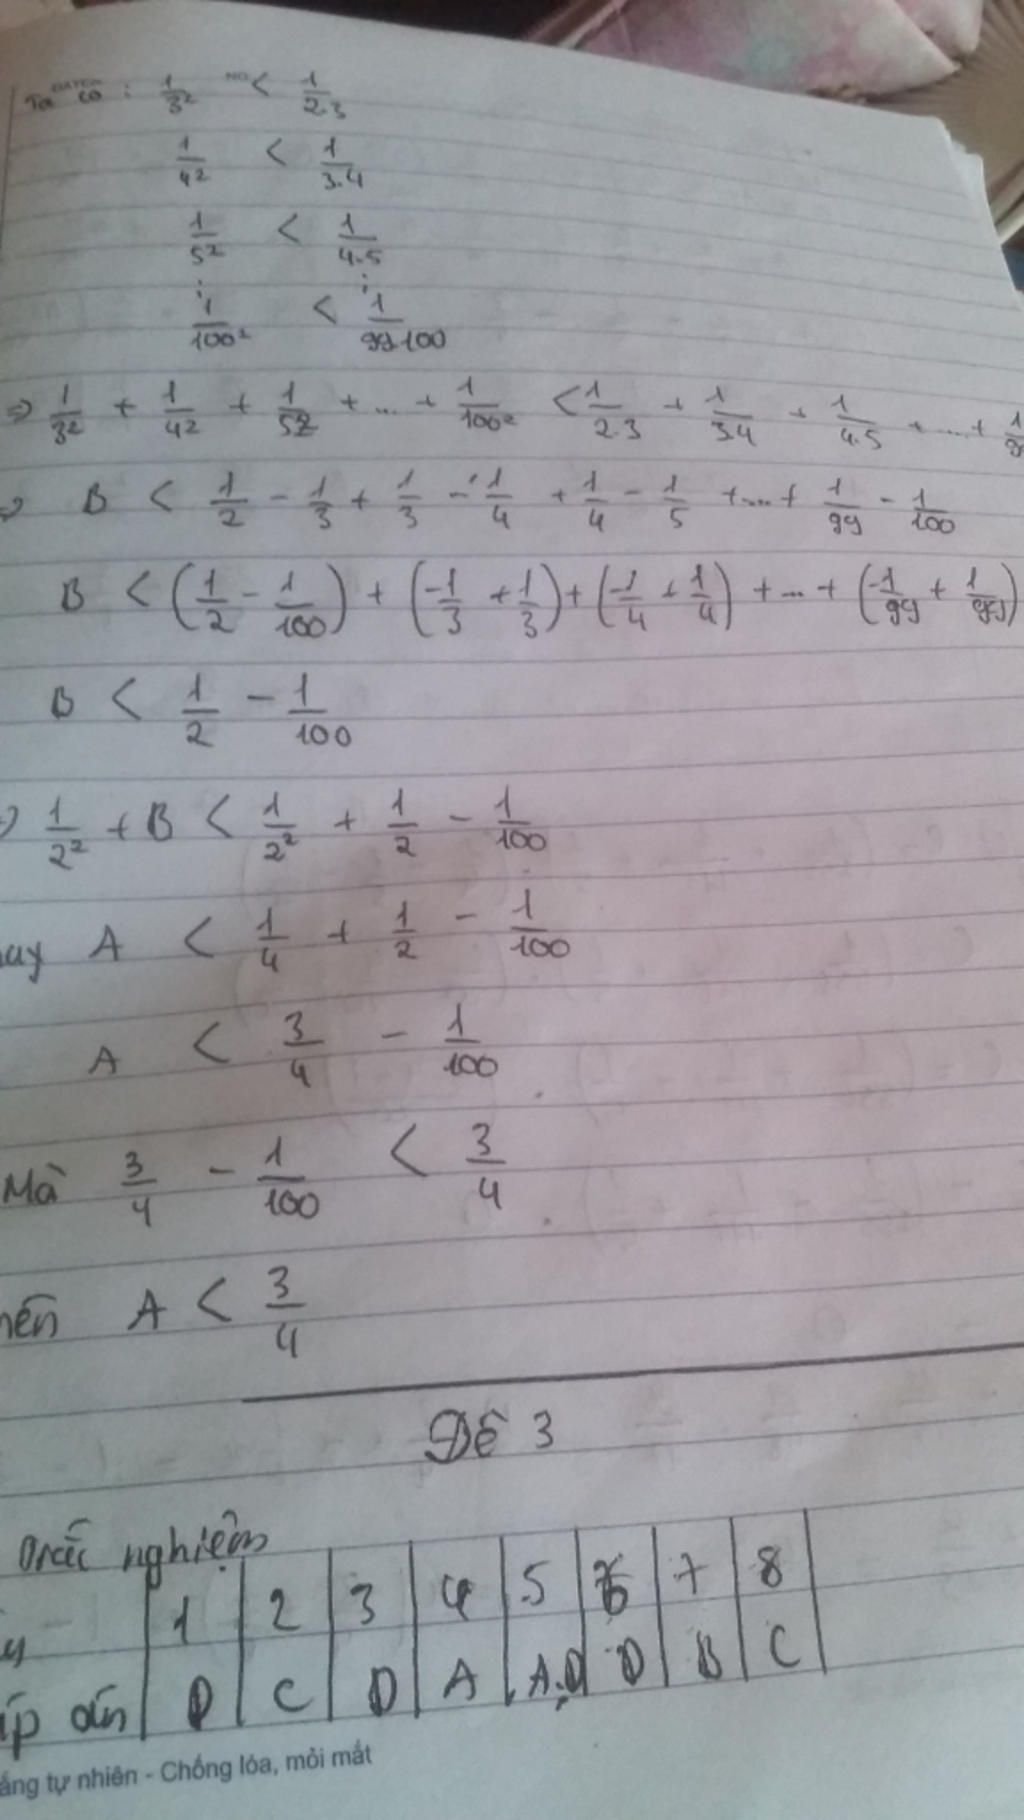 Ta có : 1/3² < 1/2.3
1/4² < 1/3.4
1/5² < 1/4.5
⋮ ⋮
1/100² < 1/99.100
=> 1/3² + 1/4² + 1/5² + ... + 1/100² < 1/2.3 + 1/3.4 + 1/4.5 + .... + 1/
=> B < 1/2 - 1/3 + 1/3 - 1/4 + 1/4 - 1/5 + .... + 1/99 - 1/100
B < (1/2 - 1/100) + (-1/3 + 1/3) + (-1/4 + 1/4) + ... + (-1/99 + 1/99)
B < 1/2 - 1/100
=> 1/2² + B < 1/2² + 1/2 - 1/100
hay A < 1/4 + 1/2 - 1/100
A < 3/4 - 1/100
Mà 3/4 - 1/100 < 3/4
nên A < 3/4
Đề 3
Trắc nghiệm
1 2 3 4 5 6 7 8
áp án D C D A A,D D B C
ắng tự nhiên - Chống lóa, mỏi mắt